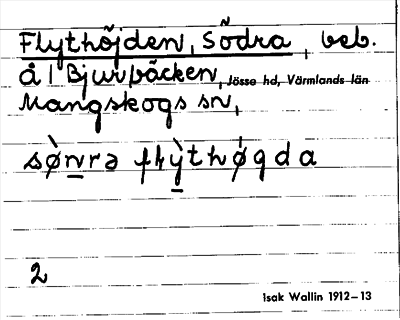 Flythöjden, Södra, beb.
å 1 Bjurbäcken, Jösse hd, Värmlands län
Mangskogs sn,
sø̀nrə flỳthø̀gda
2
Isak Wallin 1912–13